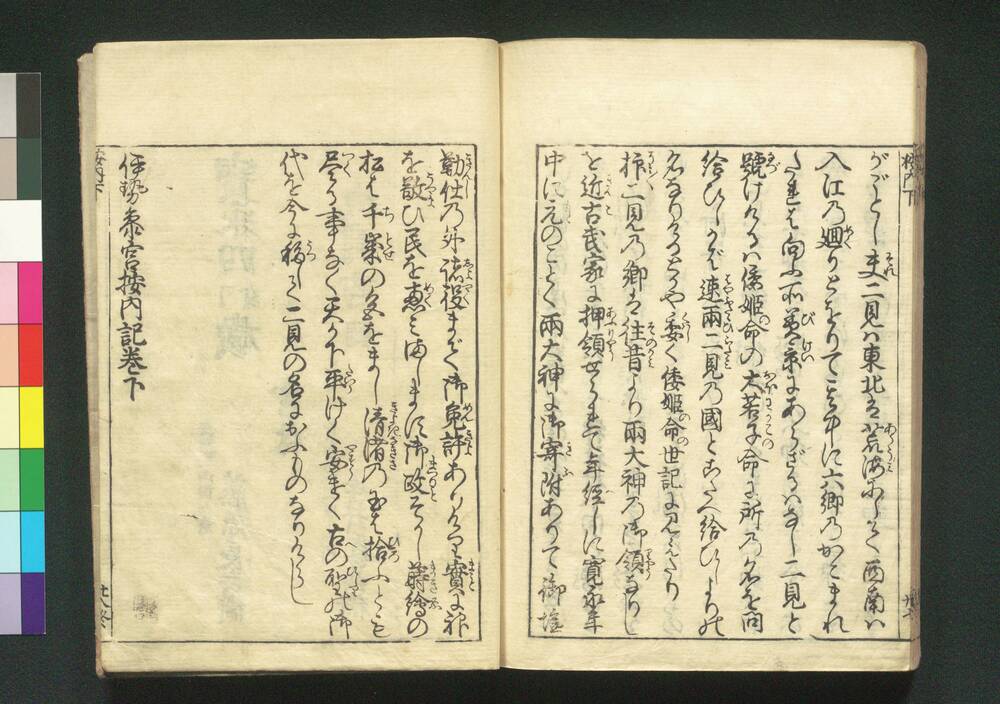 がごとし夫二見ハ東北は荒海にして西南ハ
入江乃廻りとをりて其中に六郷乃かこまれ
たれは向ふ所美景にあらざるハなし二見と
號けゝるハ倭姫命の大若子命に所乃名を問
給ひしかば速両二見乃國とこたへ給ひしよりの
名なりけるとかや委く倭姫命世記に見へたり
抑二見乃郷は往昔より兩大神乃御領なりし
を近古武家に押領せられて年經しに寛永年
中に元のごとく兩大神に御寄附ありて御塩
勤仕乃外諸役まで御免許ありける實に神
を敬ひ民を恵ミまします御政そかし蒔繪の
松も千歳の色をまし清渚乃玉も拾ふとも
尽る事なく天か下平けく安らけく古の聖の御
代を今に移して二見の名におふものなりけらし
伊勢参宮按内記巻下